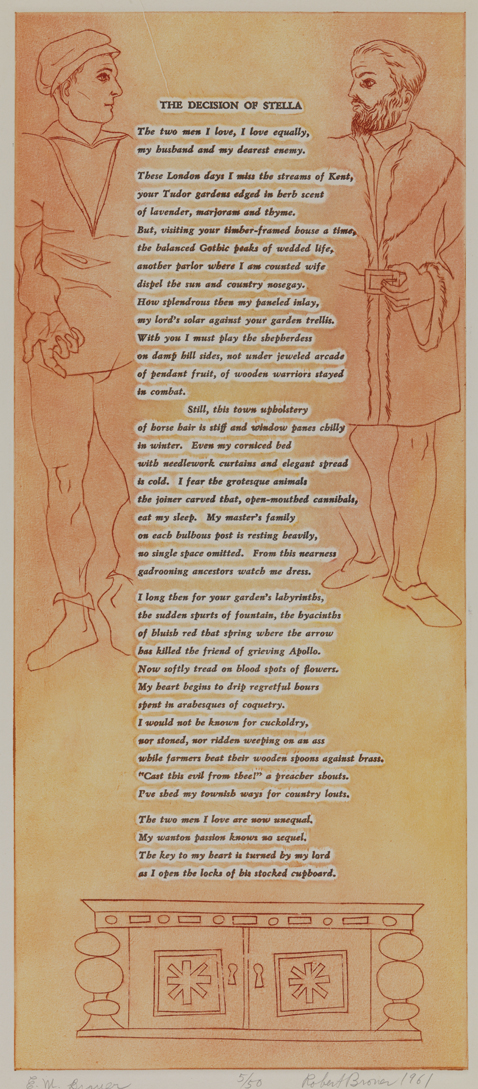 THE DECISION OF STELLA
The two men I love, I love equally,
my husband and my dearest enemy.
These London days I miss the streams of Kent,
your Tudor gardens edged in herb scent
of lavender, marjoram and thyme.
But, visiting your timber-framed house a time,
the balanced Gothic peaks of wedded life,
another parlor where I am counted wife
dispel the sun and country nosegay.
How splendrous then my paneled inlay,
my lord's solar against your garden trellis.
With you I must play the shepherdess
on damp hill sides, not under jeweled arcade
of pendant fruit, of wooden warriors stayed
in combat.
Still, this town upholstery
of horse hair is stiff and window panes chilly
in winter. Even my corniced bed
with needlework curtains and elegant spread
is cold. I fear the grotesque animals
the joiner carved that, open-mouthed cannibals,
eat my sleep. My master's family
on each bulbous post is resting heavily,
no single space omitted. From this nearness
gadrooning ancestors watch me dress.
I long then for your garden's labyrinths,
the sudden spurts of fountain, the hyacinths
of bluish red that spring where the arrow
has killed the friend of grieving Apollo.
Now softly tread on blood spots of flowers.
My heart begins to drip regretful hours
spent in arabesques of coquetry.
I would not be known for cuckoldry,
nor stoned, nor ridden weeping on an ass
while farmers beat their wooden spoons against brass.
"Cast this evil from thee!" a preacher shouts.
I've shed my townish ways for country louts.
The two men I love are now unequal.
My wanton passion knows no sequel.
The key to my heart is turned by my lord
as I open the locks of his stocked cupboard.
E. M. 5/50 Robert Broner 1961